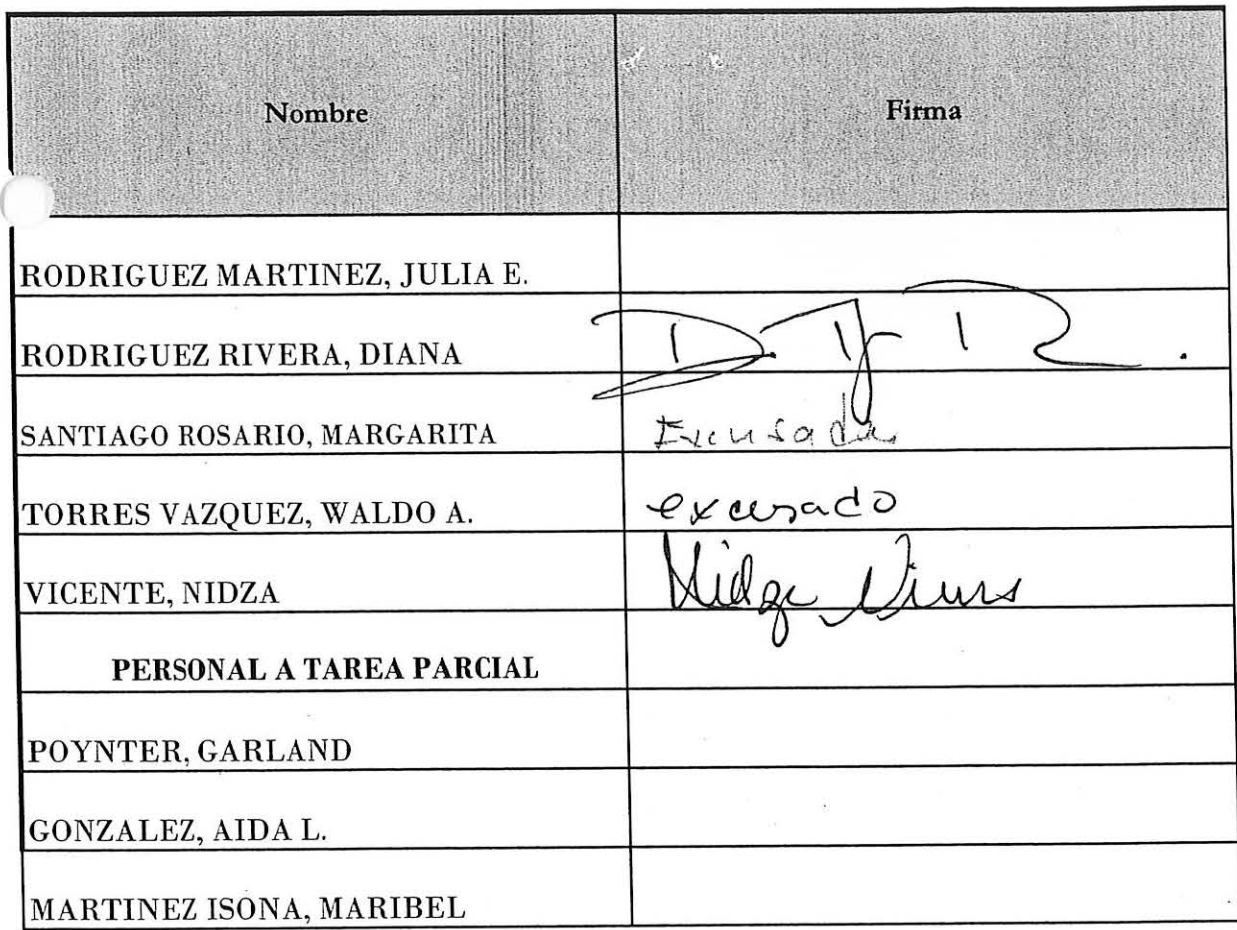 Nombre Firma
RODRIGUEZ MARTINEZ, JULIA E.
RODRIGUEZ RIVERA, DIANA
SANTIAGO ROSARIO, MARGARITA Excusada
TORRES VAZQUEZ, WALDO A. excusado
VICENTE, NIDZA
PERSONAL A TAREA PARCIAL
POYNTER, GARLAND
GONZALEZ, AIDA L.
MARTINEZ ISONA, MARIBEL